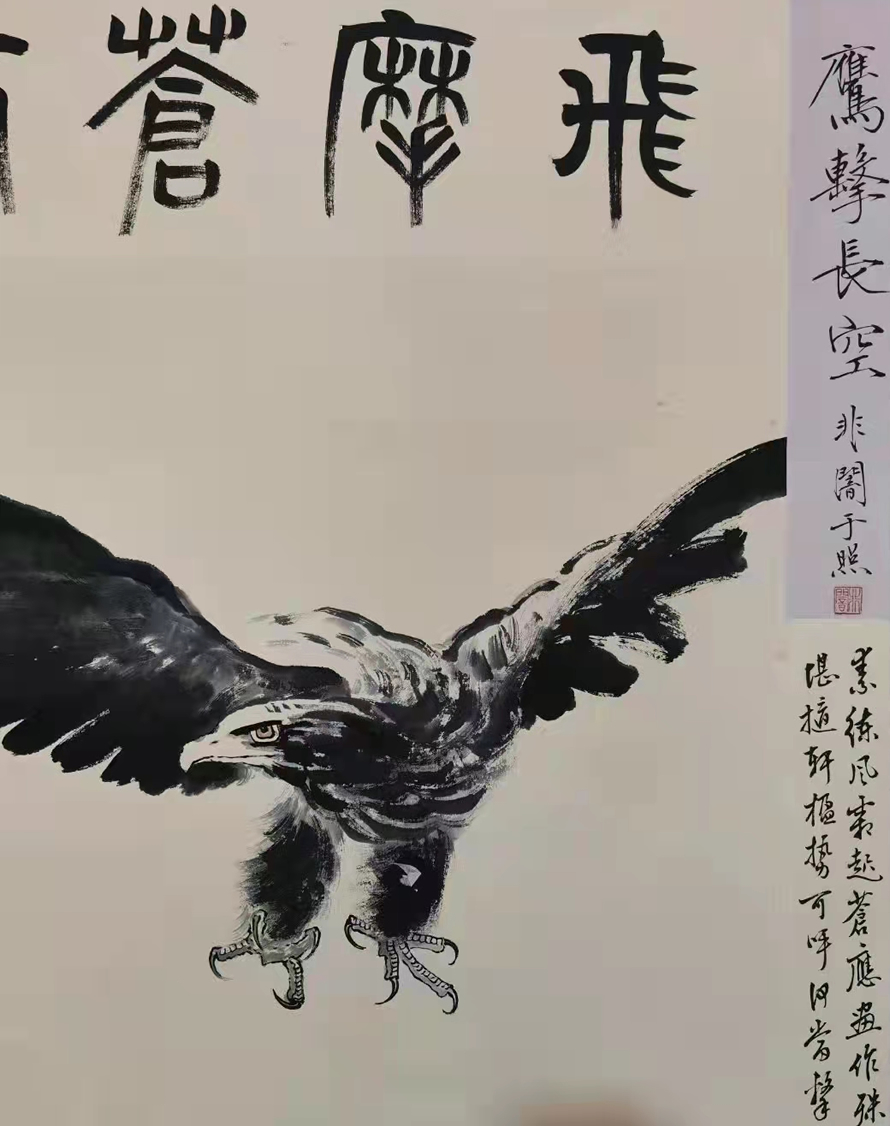 鷹擊長空
非闇于照
飛摩蒼
素練風霜起蒼應畫作殊
堪擿軒楹勢可呼何當擊